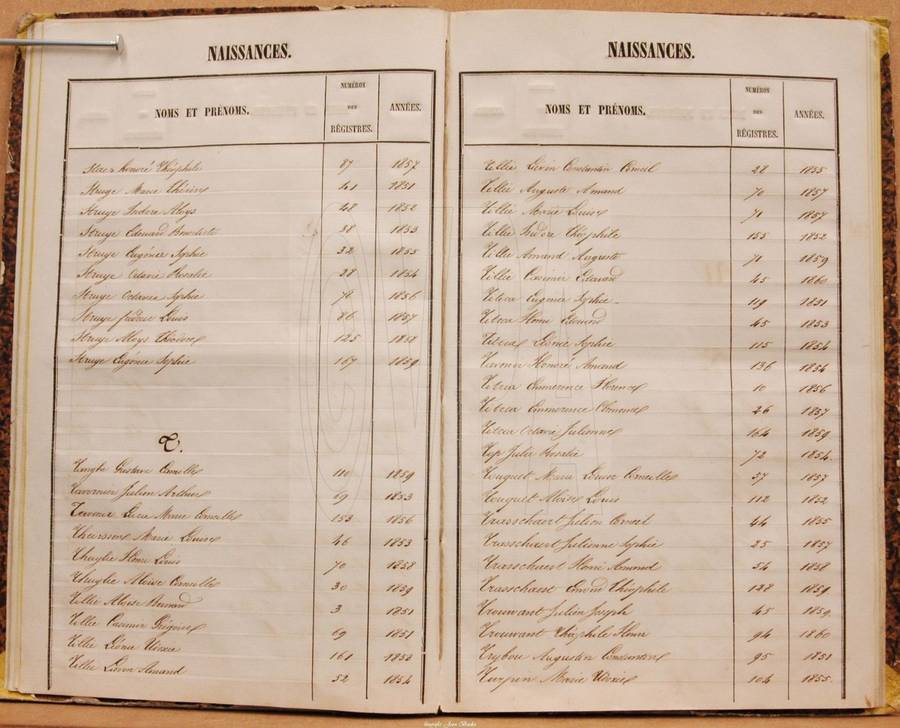 NAISSANCES.
NOMS ET PRÉNOMS. NUMÉROS DES RÉGISTRES. ANNÉES.
Honoré Théophile 87 1857
Struye Marie Thérèse 41 1851
Struye Isidore Aloys 48 1852
Struye Edouard Benedicte 38 1853
Struye Eugénie Sophie 32 1855
Struye Octavie Rosalie 28 1854
Struye Octavie Sophie 78 1856
Struye Louis 86 1857
Struye Aloys Théodore 125 1858
Struye Eugénie Sophie 167 1859
T.
Gustave Corneille 110 1859
Tavernier Julien Arthur 69 1853
Marie Corneille 153 1856
Marie Louise 46 1853
Henri Louis 70 1858
Aloise Corneille 30 1859
Tillie Aloise Bernard 3 1851
Tillie Casimir Grégoire 69 1851
Tillie Léonie 161 1853
Tillie Livin Amand 52 1854
NAISSANCES.
NOMS ET PRÉNOMS. NUMÉROS DES RÉGISTRES. ANNÉES.
Tillie Livin Constantin Corneil 28 1855
Tillie Auguste Amand 70 1857
Tillie Marie Louise 71 1857
Tillie Isidore Théophile 155 1852
Tillie Amand Auguste 71 1859
Tillie Casimir Edouard 45 1860
Eugénie Sophie 119 1851
Henri Edouard 45 1853
Léonie Sophie 115 1854
Honoré Amand 136 1854
Emmerence Florence 10 1856
Emmerence Clémence 26 1857
Octavie Julienne 164 1859
Julie Rosalie 72 1854
Touquet Marie Louise Corneille 57 1857
Touquet Aloise Louis 112 1852
Trasschaert Julien Corneil 44 1855
Trasschaert Julienne Sophie 25 1857
Trasschaert Henri Amand 54 1858
Trasschaert Théophile 128 1859
Trouwant Julien Joseph 45 1859
Trouwant Théophile Henri 94 1860
Trybou Augustin 95 1851
Turpin Marie 104 1855